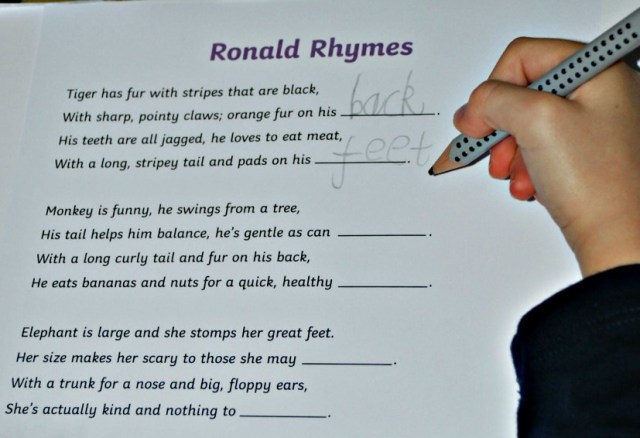 Ronald Rhymes
Tiger has fur with stripes that are black,
With sharp, pointy claws; orange fur on his back.
His teeth are all jagged, he loves to eat meat,
With a long, stripey tail and pads on his feet.
Monkey is funny, he swings from a tree,
His tail helps him balance, he's gentle as can ____________.
With a long curly tail and fur on his back,
He eats bananas and nuts for a quick, healthy ____________.
Elephant is large and she stomps her great feet.
Her size makes her scary to those she may ____________.
With a trunk for a nose and big, floppy ears,
She's actually kind and nothing to ____________.